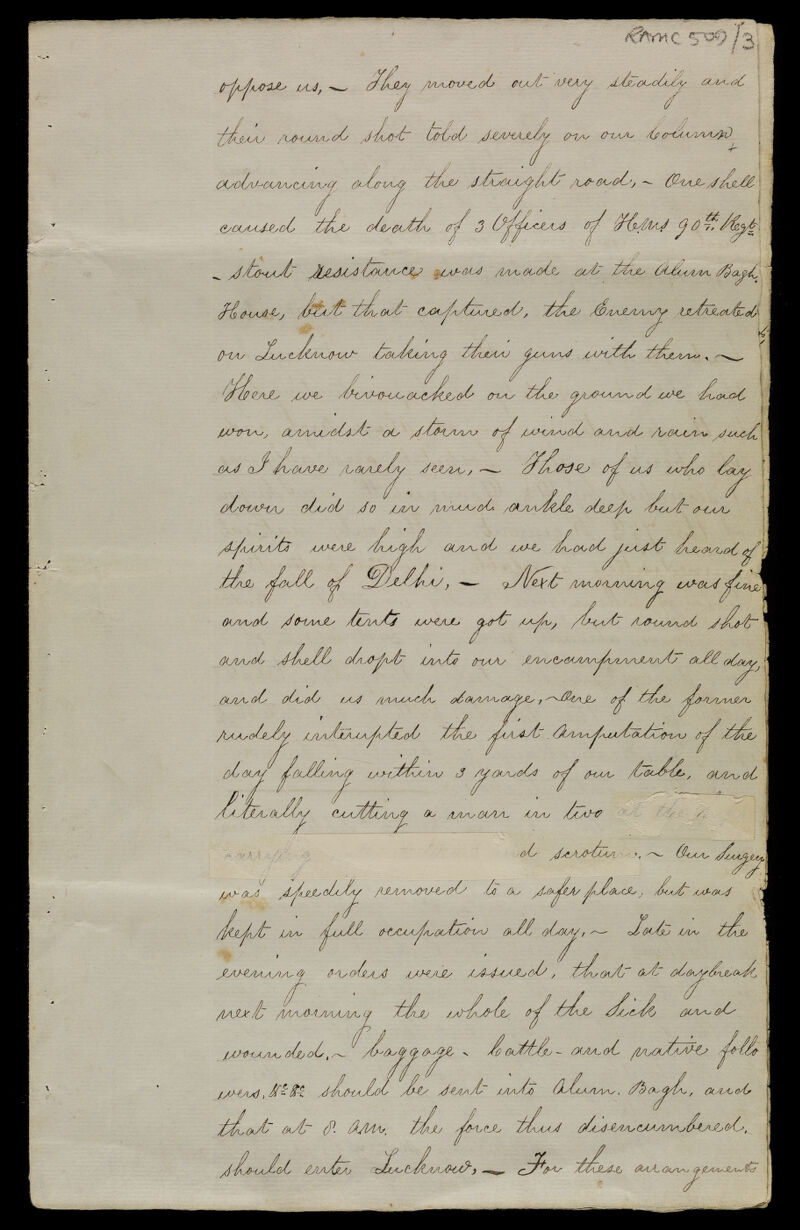 RAMC 509/3
oppose us, – They moved out very steadily and
their round shot told severely on our Column
advancing along the straight road, – One shell
caused the death of 3 Officers of H.M's 90th. Regt
- stout resistance was made at the Alum Bagh.
House, but that captured, the Enemy retreated
on Lucknow taking their guns with them. –
Here we bivouacked on the ground we had
won, amidst a storm of wind and rain such
as I have rarely seen, – Those of us who lay
down did so in mud ankle deep but our
spirits were high and we had just heard of
the fall of Delhi, – Next morning was fine
and some tents were got up, but round shot
and shell dropt into our encampment all day,
and did us much damage, – One of the former
rudely interupted the first Amputation of the
day falling within 3 yards of our table, and
literally cutting a man in two at the
carrying scrotum. – Our Surgery
was speedily removed to a safer place, but was
kept in full occupation all day, – Late in the
evening orders were issued, that at daybreak
next morning the whole of the Sick and
wounded, – baggage – Cattle – and native follo
wers, &c &c should be sent into Alum. Bagh, and
that at 8. A.M. the force thus disencumbered,
should enter Lucknow, – For these arrangements